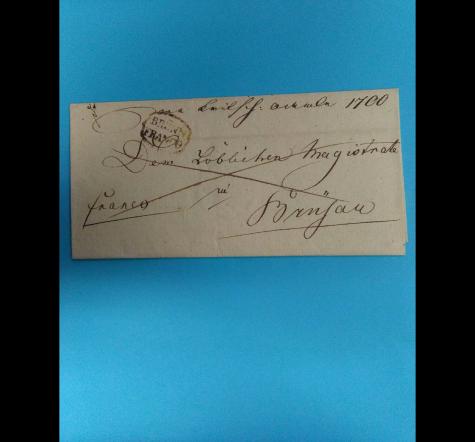 1700
BRÜNN
FRANCO
Dem Löblichen Magistrate
franco
zu
Brüsau